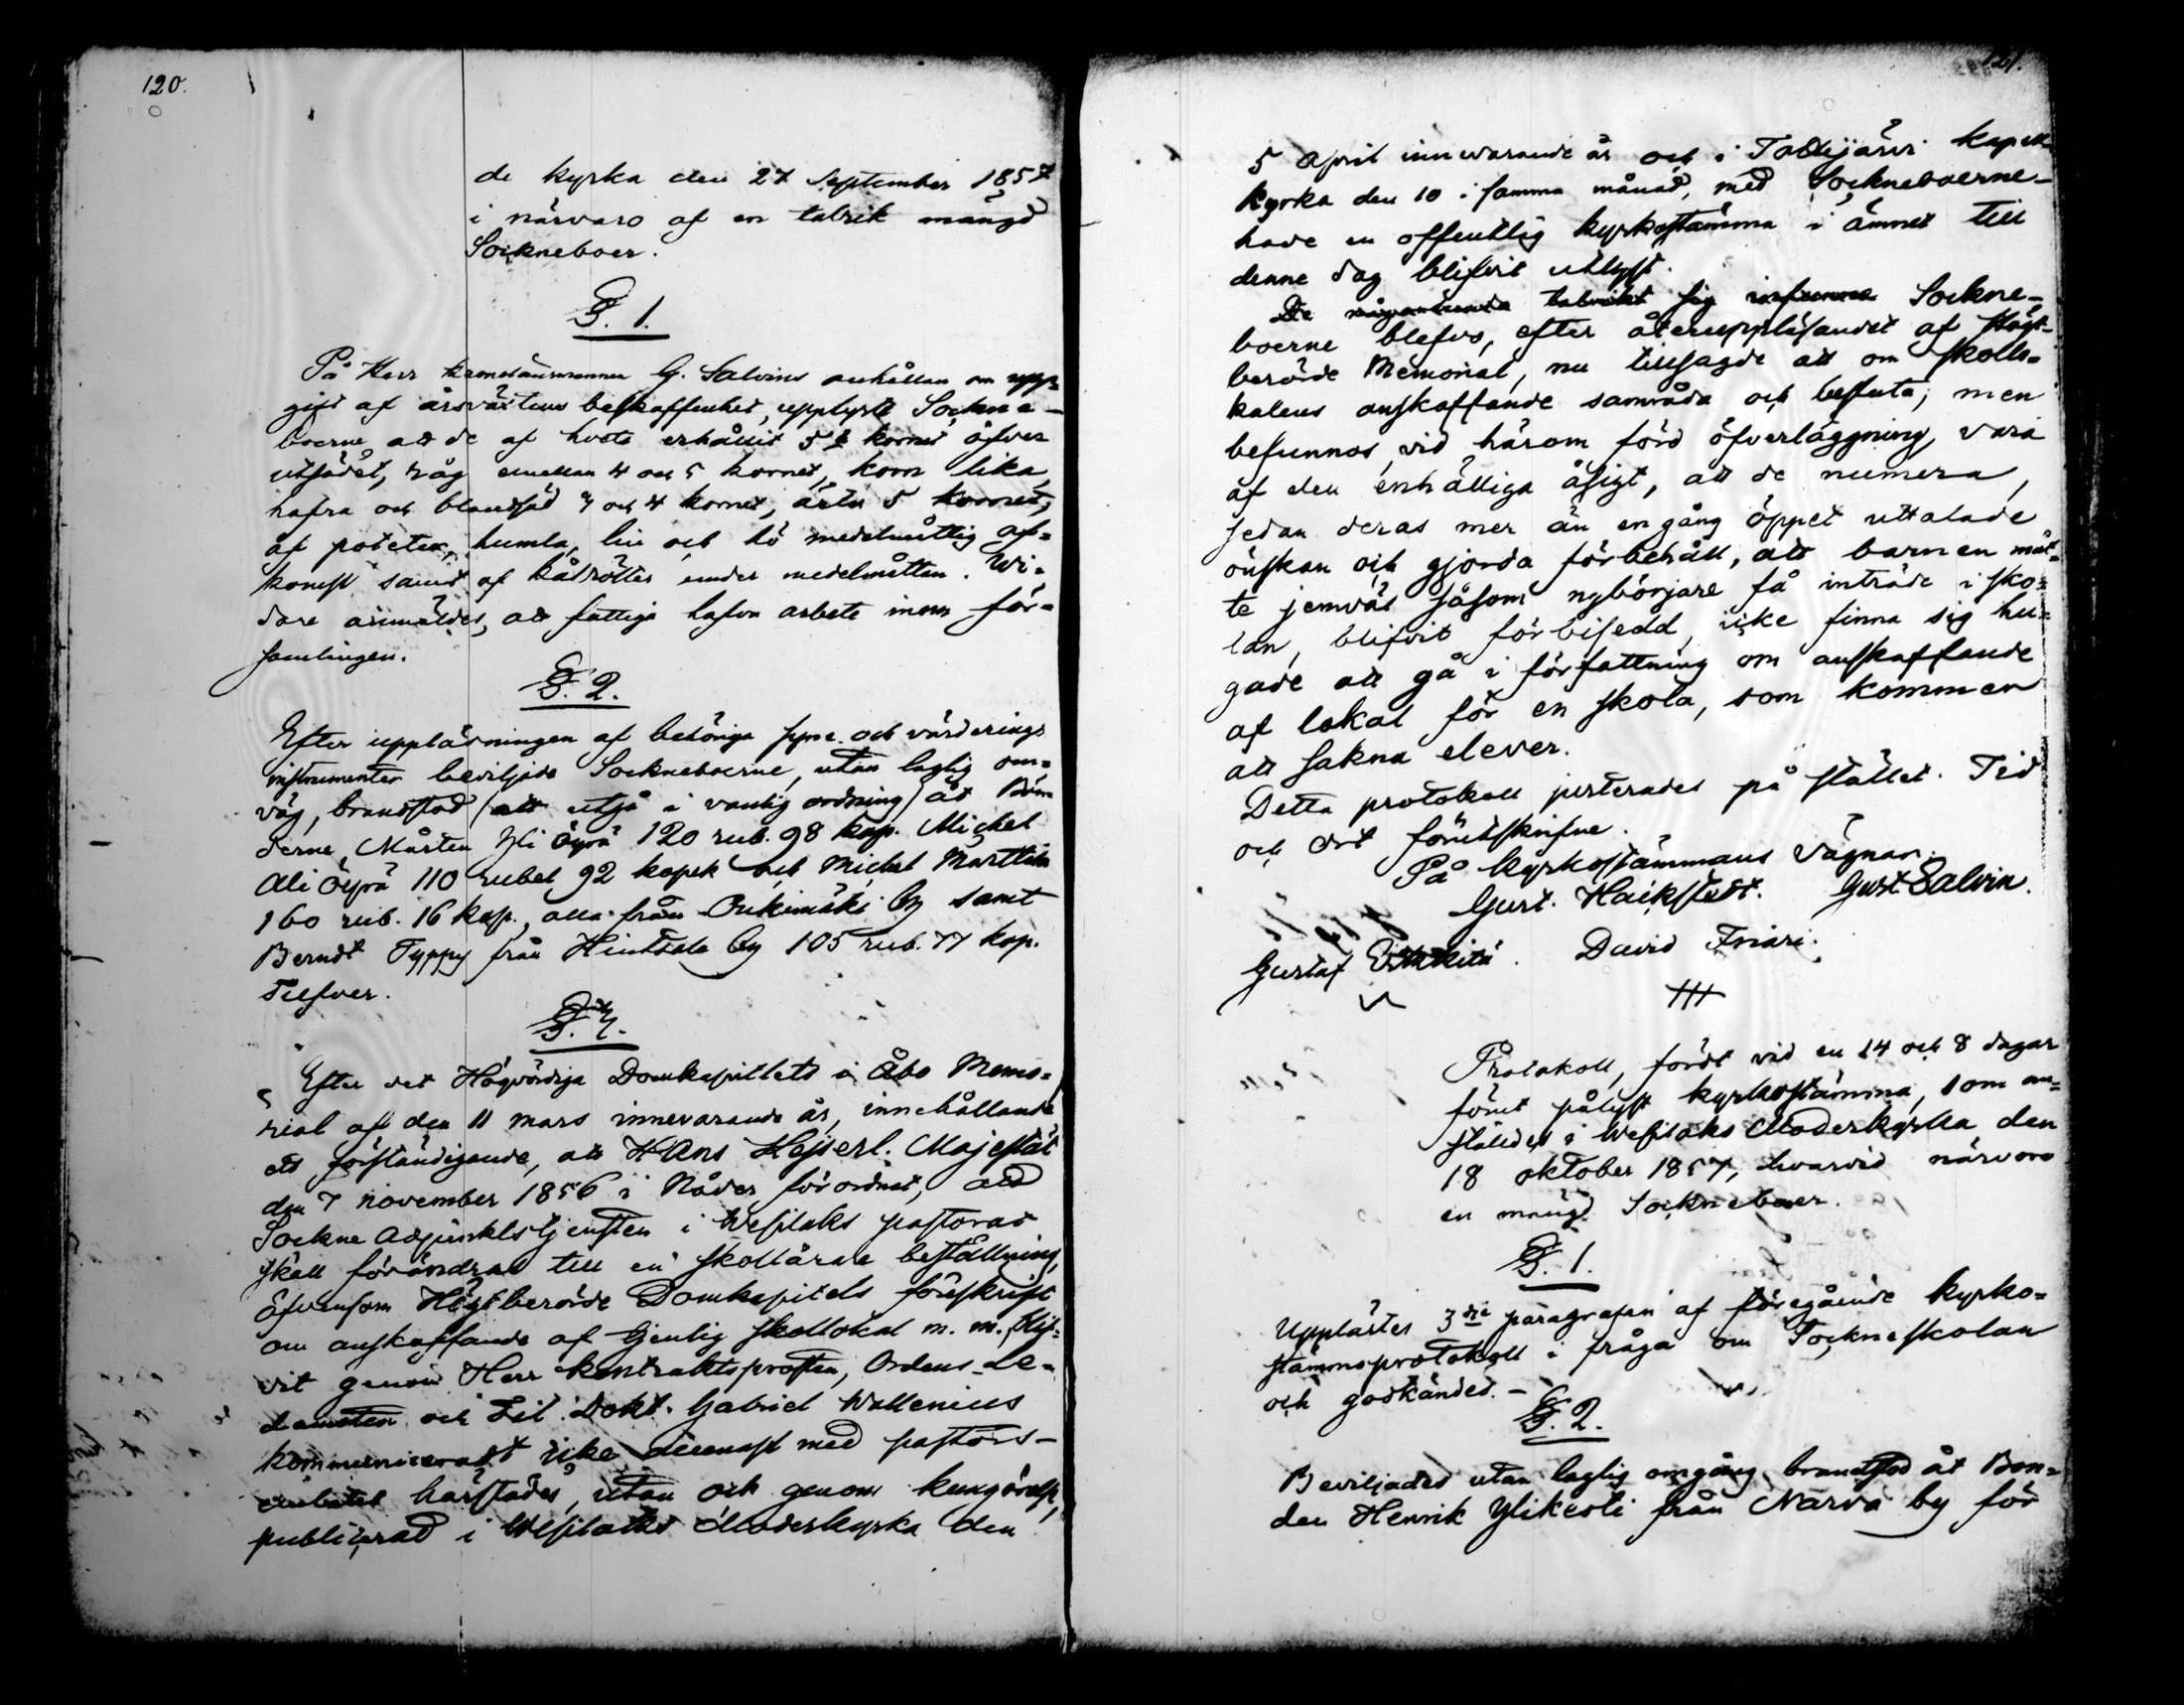 120.
de kyrka den 27 September 1857
i närvaro af en talrik mängd
Sockneboer.
§. 1.
På Herr Kronolänsmannen G. Salvins anhållan om upp=
gift af årsväxtens beskaffenhet, upplyste Sockne-
boerne att de af hvete erhållit 5 kornet öfver
utsädet, råg emellan 4 och 5 kornet, korn lika,
hafra och blandsäd 3 och 4 kornet, ärter 5 kornet,
af poteter, humla, lin och hö medelmåttig af=
komst samt af kålrötter under medelmåttan. Wi=
dare anmäldes, att fattiga hafva arbete inom för=
samlingen.
§. 2.
Efter uppläsningen af behöriga syne och värderings
instrumenter beviljade Sockneboerne, utan laglig om=
väg, brandstod (att utgå i vanlig ordning) åt Bön
derne, Mårten Yli Öyrä 120 rub. 98 kop. Michel
Ali Öyrä 110 rubel 92 kopek och Michel Marttila
160 rub. 16 kop., alla från Onkimäki by samt
Berndt Typpy från Hintsala by 105 rub. 77 kop.
Silfver.
§. 3.
Efter det Högvördiga Domkapitlets i Åbo Memo=
rial af den 11 mars innevarande år, innehållande
ett förständigande, att Hans Kejserl. Majestät
den 7 november 1856 i Nåder förordnat, att
Sockne Adjunktstjensten i Wesilaks pastorat
skall förändras till en skollärare beställning,
äfvensom Högtberörde Domkapitels föreskrift
om anskaffande af tjenlig skollokal m. m., blif=
vit genom Herr Kontraktsprosten, Ordens Le=
damoten och Fil. Dokt. Gabriel Wallenius
kommuniceradt icke allenast med pastors-
embetet härstädes, utan och genom kungörelse,
publicerad i Wesilaks Moderkyrka den
121.
5 April innevarande år och i Tottijärvi kapell
kyrka den 10 i samma månad, med Sockneboerne-
hade en offentlig kyrkostämma i ämnet till
denne dag blifvit utlyst.
De talrikt sig Sockne-
boerne blefvo, efter återuppläsandet af Högt=
berörde Memorial, nu tillsagde att om skollo=
kalens anskaffande samråda och besluta; men
befunnos, vid härom förd öfverläggning, vara
af den enhälliga åsigt, att de numera,
sedan deras mer än en gång öppet uttalade
önskan och gjorda förbehåll, att barnen måt=
te jemväl såsom nybörjare få inträde i sko=
lan, blifvit förbisedd, icke finna sig hu=
gade att gå i författning om anskaffande
af lokal för en skola, som kommer
att sakna elever.
Detta protokoll justerades på stället. Tid
och ort förutskrifne.
På kyrkostämmans vägnar.
Gust. Hackstedt. Gust Salvin.
Gustaf David
Protokoll, fördt vid en 14 och 8 dagar
förut pålyst kyrkostämma, som an=
ställdes i Wesilaks Moderkyrka den
18 oktober 1857, hvarvid närvoro
en mängd Sockneboer.
§. 1.
Upplästes 3die paragrafen af föregående kyrko=
stämmoprotokoll i fråga om Sockneskolan
och godkändes. -
§. 2.
Beviljades utan laglig omgång brandstod åt Bon=
den Henrik Ylikesti från Narva by för